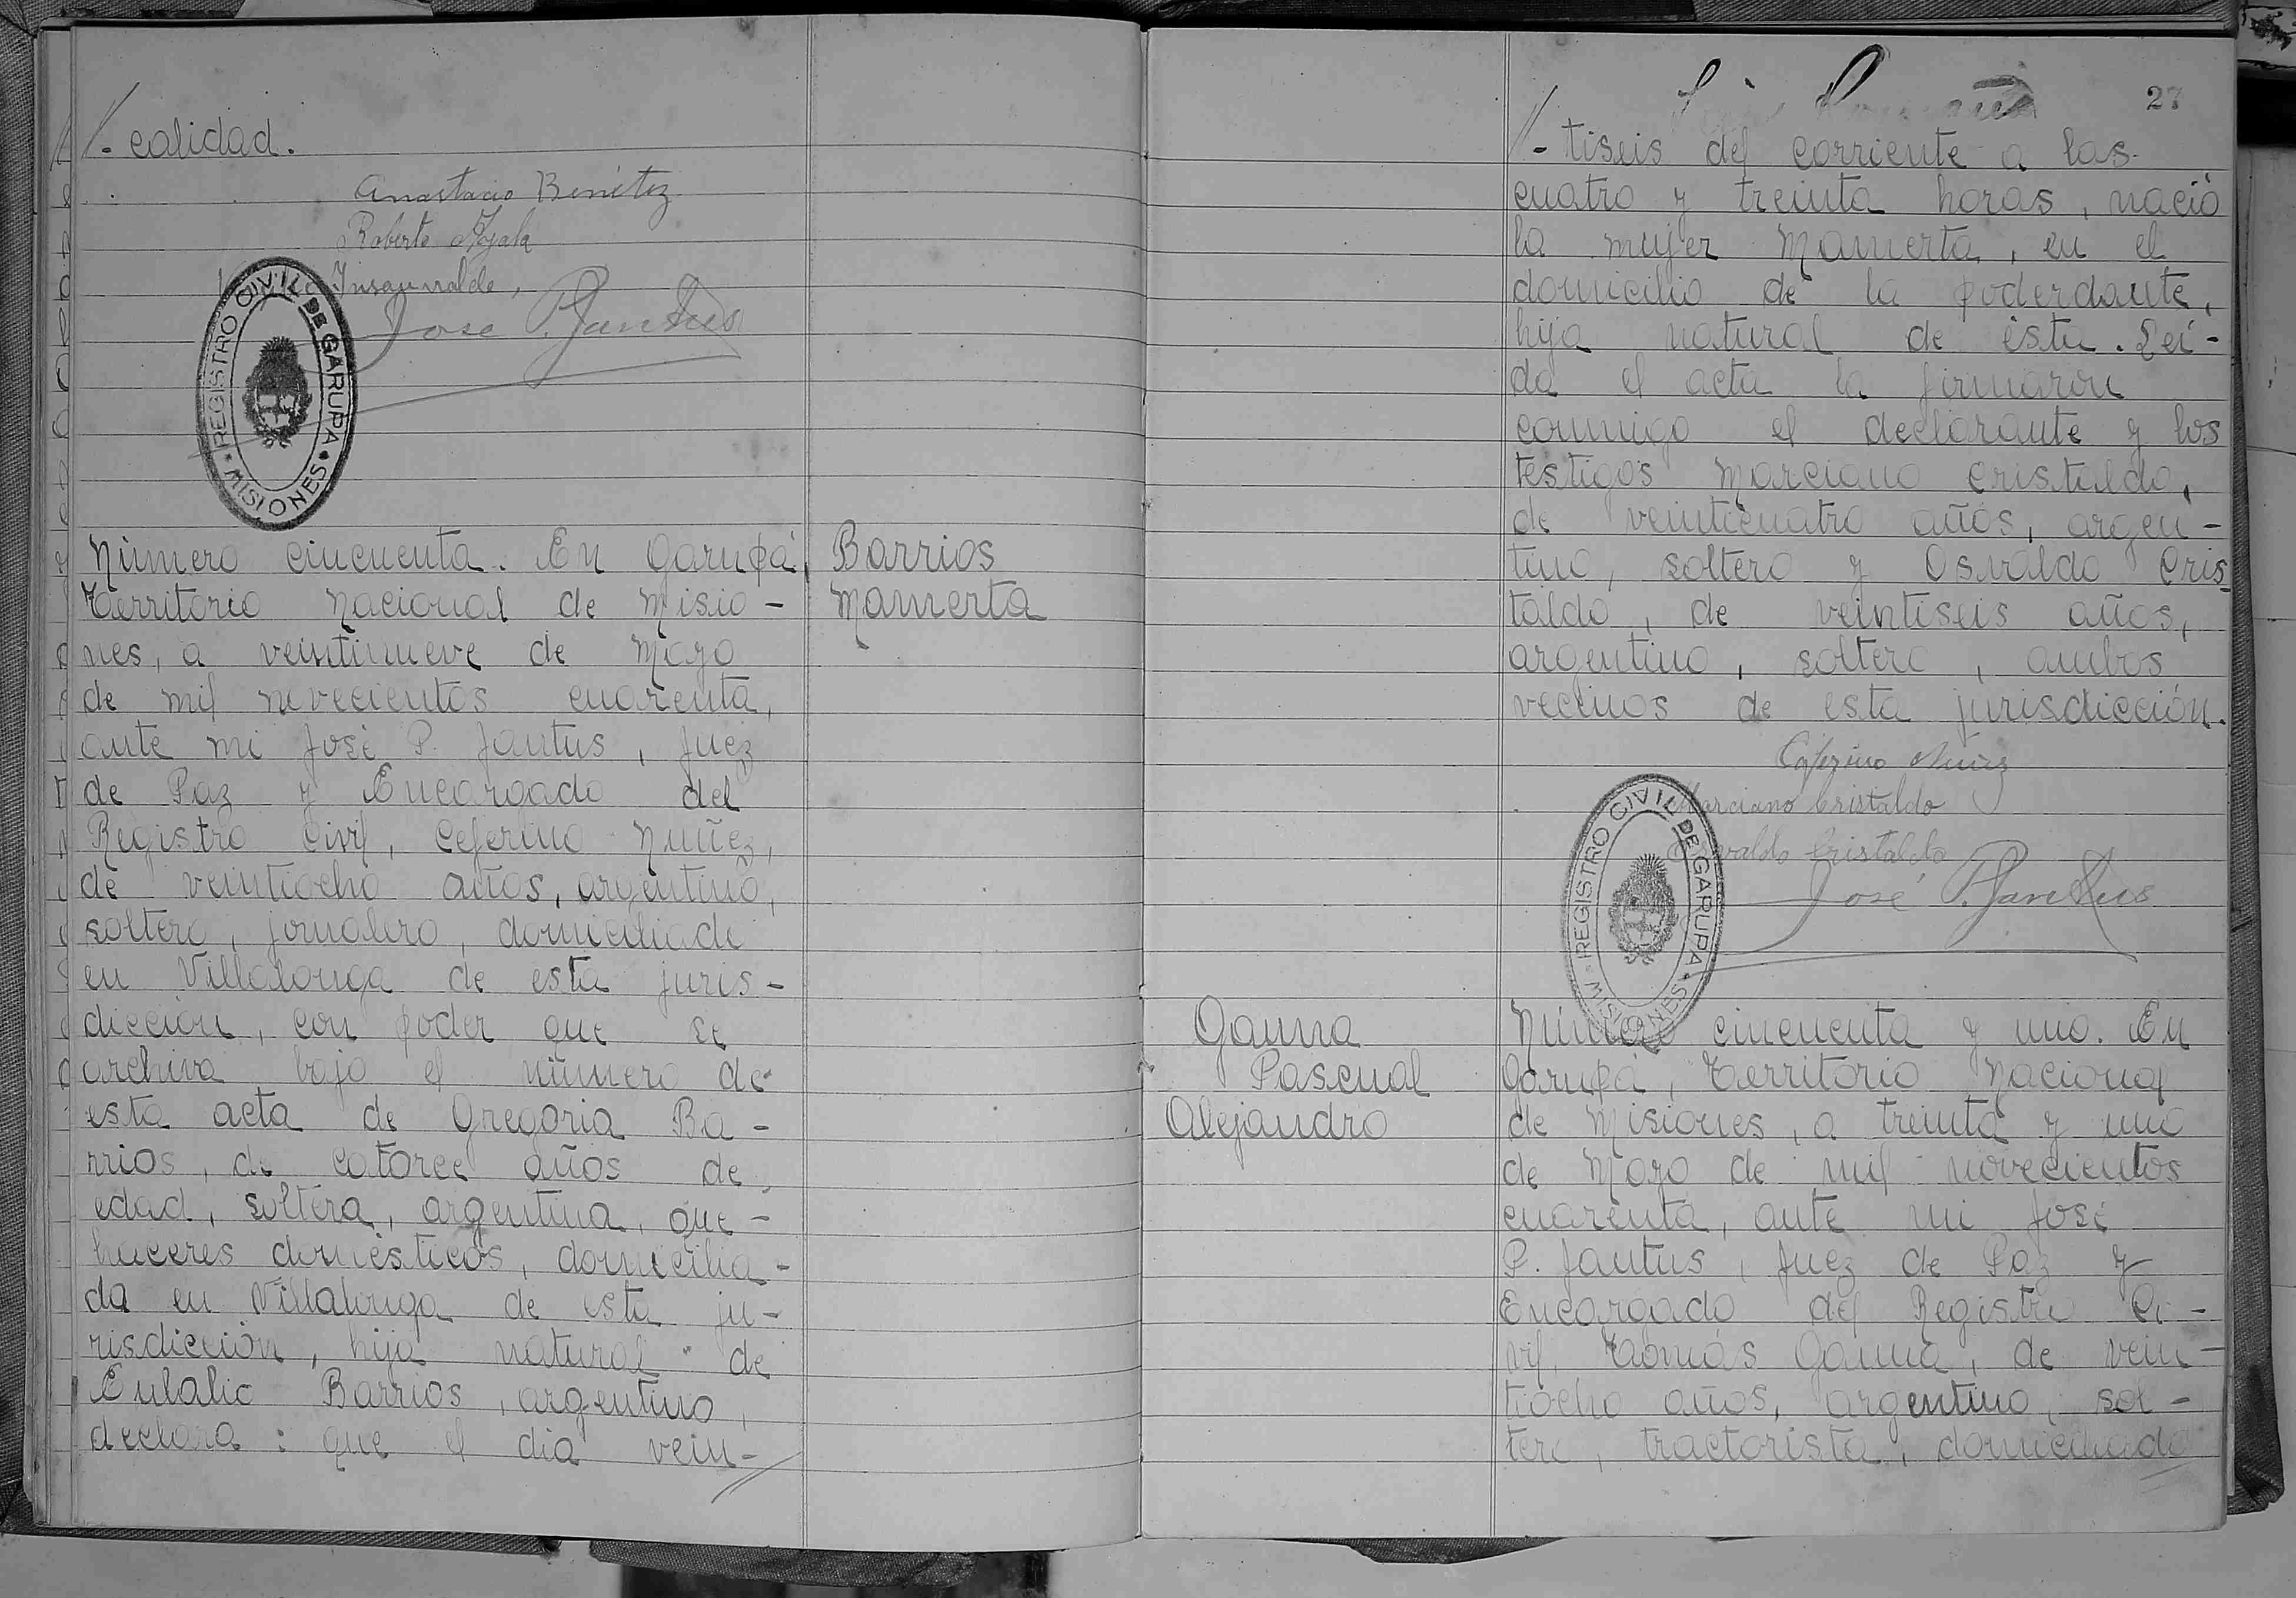 //- calidad.
Anastacio Benitez
Roberto Ayala
Insaurralde,
José P. Jantus
REGISTRO CIVIL DE GARUPA
* MISIONES *
Número cincuenta. En Garupá,
Territorio Nacional de Misio-
nes, a veintinueve de Mayo
de mil novecientos cuarenta,
ante mi José P. Jantus, Juez
de Paz y Encargado del
Registro Civil, Ceferino Nuñez,
de veintiocho años, argentino,
soltero, jornalero, domiciliado
en Villalonga de esta juris-
dicción, con poder que se
archiva bajo el número de
esta acta de Gregoria Ba-
rrios, de catorce años de
edad, soltera, argentina, que-
haceres domésticos, domicilia-
da en Villalonga de esta ju-
risdicción, hija natural de
Eulalio Barrios, argentino,
declara: que el dia vein-//
Barrios
Mamerta
27
//- tiseis del corriente a las
cuatro y treinta horas, nació
la mujer Mamerta, en el
domicilio de la poderdante,
hija natural de ésta. Lei-
da el acta la firmaron
conmigo el declarante y los
testigos Marciano Cristaldo,
de veinticuatro años, argen-
tino, soltero y Osvaldo Cris
taldo, de veintiseis años,
argentino, soltero, ambos
vecinos de esta jurisdicción.
Ceferino Nuñez
Marciano Cristaldo
Osvaldo Cristaldo
José P. Jantus
REGISTRO CIVIL DE GARUPA
* MISIONES *
Gauna
Pascual
Alejandro
Número cincuenta y uno. En
Garupá, Territorio Nacional
de Misiones, a treinta y uno
de Mayo de mil novecientos
cuarenta, ante mi José
P. Jantus, Juez de Paz y
Encargado del Registro Ci-
vil, Tomás Gauna, de vein-
tiocho años, argentino, sol-
tero, tractorista, domiciliado